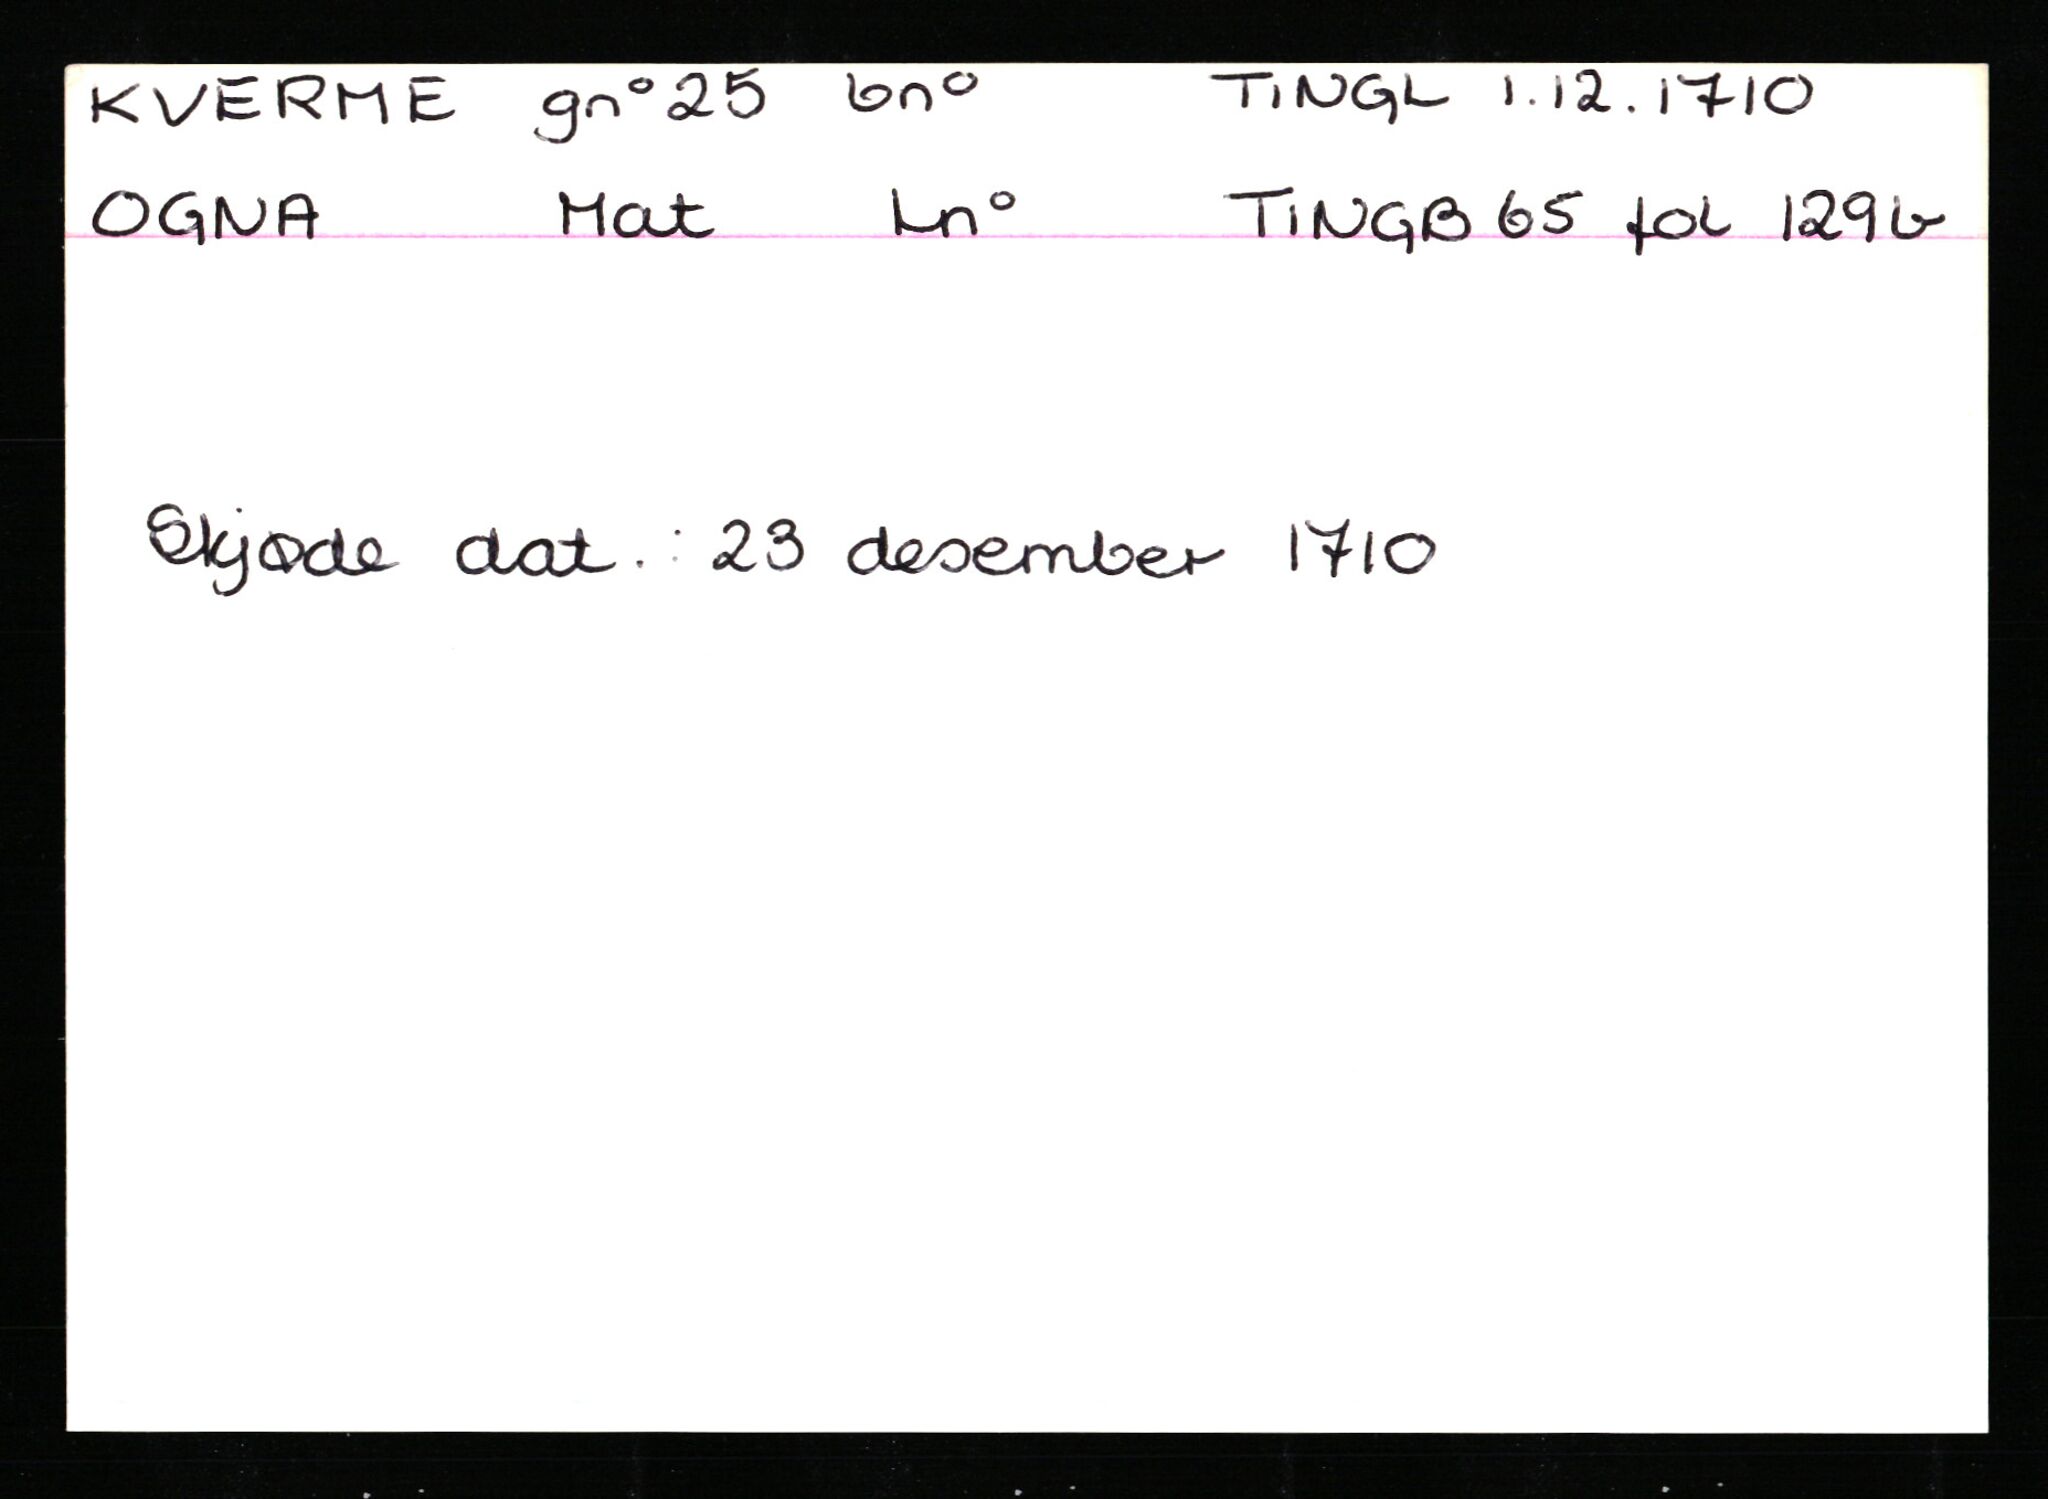 KVERME gn° 25 bn° TINGL 1.12.1710
OGNA Mat Ln° TINGB 65 fol 129b
Skjøde dat.: 23 desember 1710